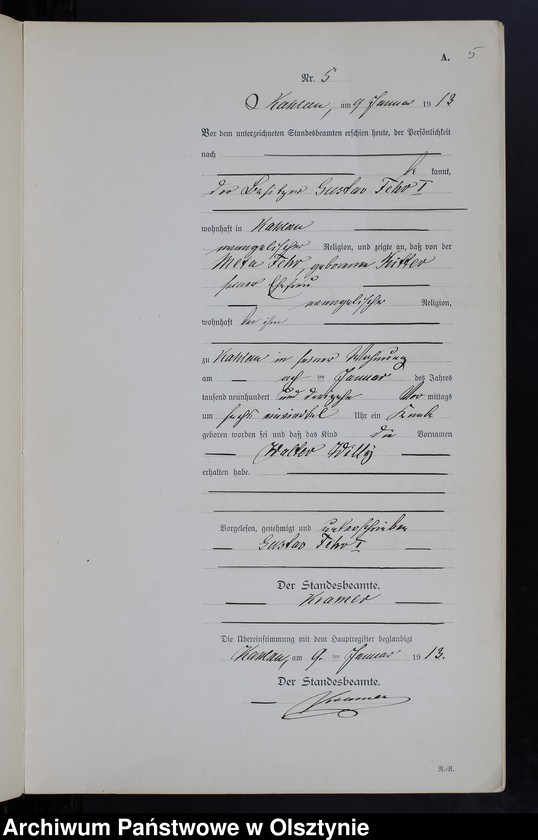 A. 5
Nr. 5
Kahlau, am 9 Januar 1913
Vor dem unterzeichneten Standesbeamten erschien heute, der Persönlichkeit
nach
be kannt,
der Besitzer Gustav Fehr I
wohnhaft in Kahlau
evangelischer Religion, und zeigte an, daß von der
Meta Fehr, geborenen Ritter
seiner Ehefrau
evangelischer Religion,
wohnhaft bei ihm
zu Kahlau in seiner Wohnung
am Januar des Jahres
tausend neunhundert und dreizehn Vor mittags
um sechs einviertel Uhr ein Knabe
geboren worden sei und daß das Kind die Vornamen
Walter Willy
erhalten habe.
Vorgelesen, genehmigt und unterschrieben
Gustav Fehr I
Der Standesbeamte.
Kramer
Die Übereinstimmung mit dem Hauptregister beglaubigt
Kahlau, am 9. Januar 1913.
Der Standesbeamte.
Kramer
R.-R.
Archiwum Państwowe w Olsztynie